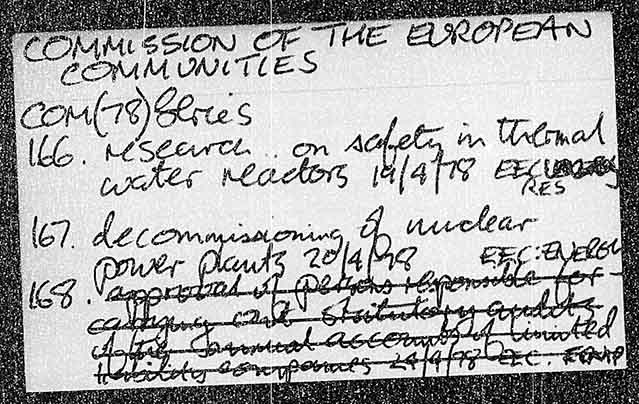 COMMISSION OF THE EUROPEAN
COMMUNITIES
COM(78) Series
166. research .. on safety in thermal
water reactors 19/4/78 EEC
RES
167. decommissioning of nuclear
power plants 20/4/78 EEC: ENERGY
168. approval of persons responsible for
carrying out statutory audits
of the annual accounts of limited
liability companies 24/4/78 EEC. COMP